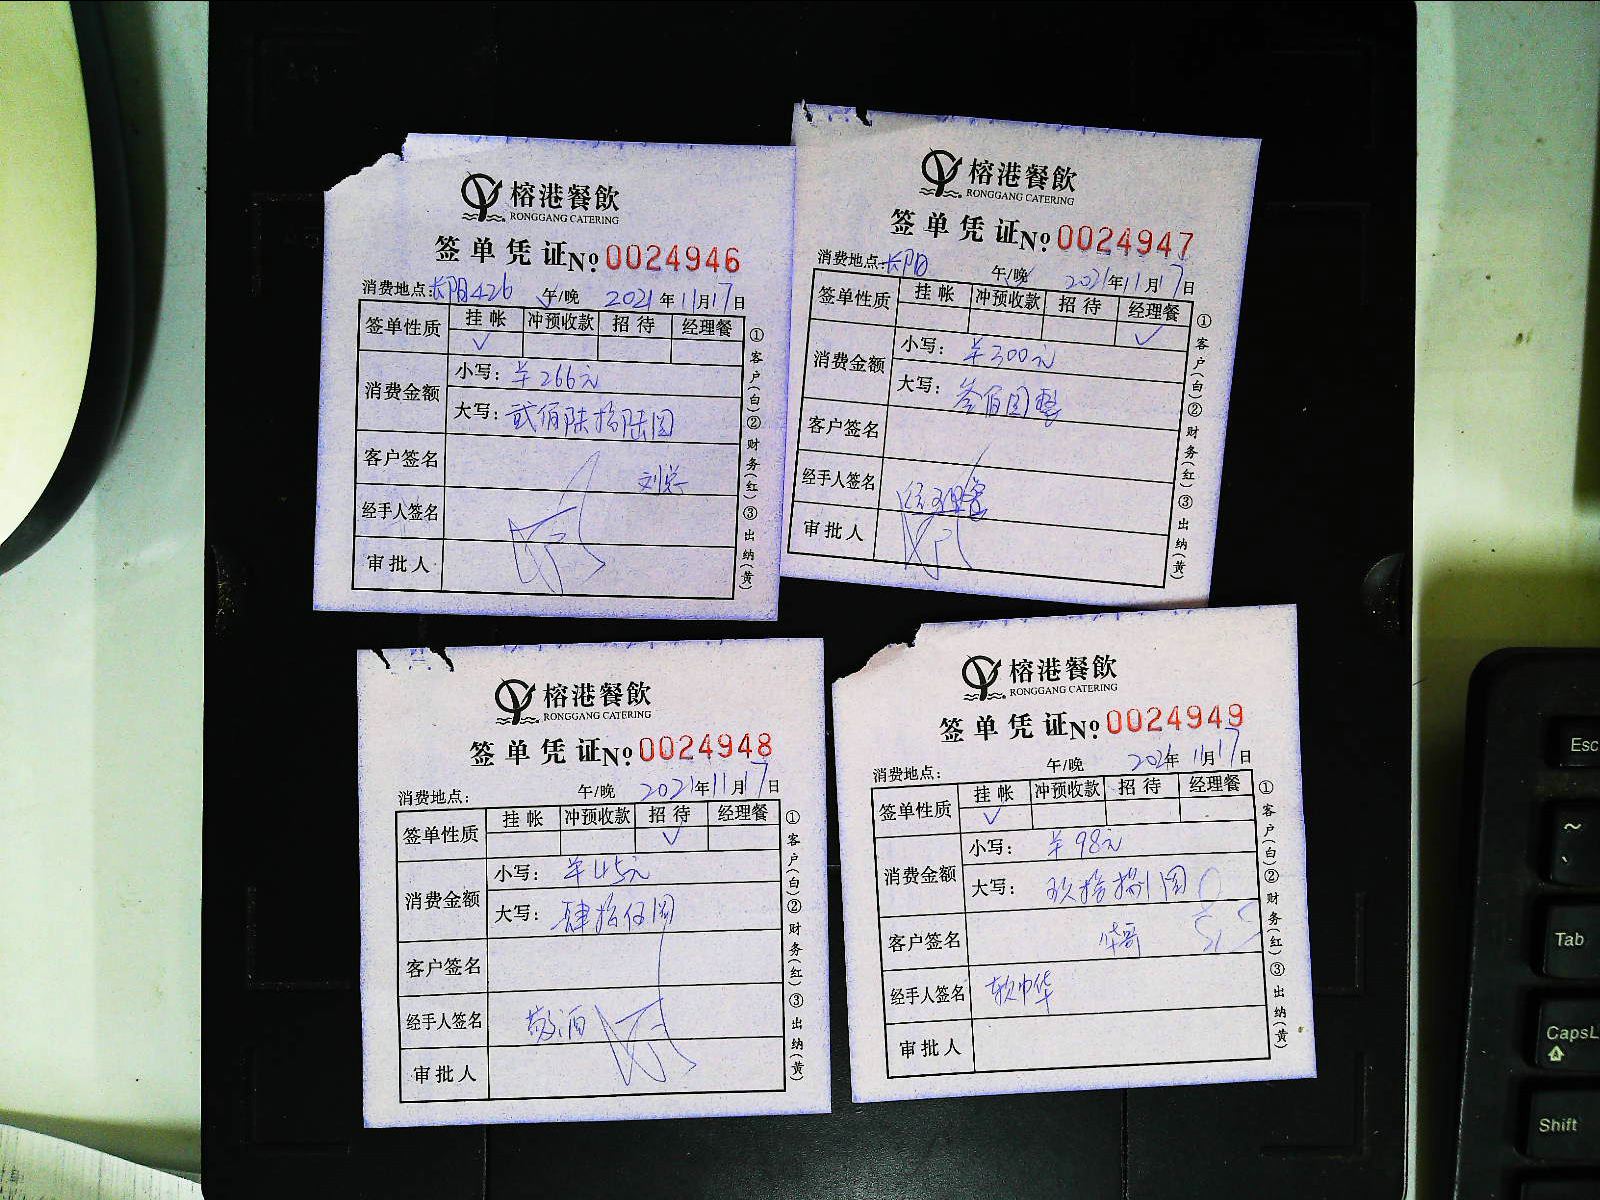 榕港餐飲
RONGGANG CATERING
签单凭证№ 0024946
消费地点: 长阳426 午/晚 2021年11月17日
签单性质 挂帐 冲预收款 招待 经理餐
✓
消费金额 小写: ¥266元
大写: 贰佰陆拾陆圆
客户签名
经手人签名
审批人
①客户(白)②财务(红)③出纳(黄)
榕港餐飲
RONGGANG CATERING
签单凭证№ 0024947
消费地点: 长阳 午/晚 2021年11月17日
签单性质 挂帐 冲预收款 招待 经理餐
✓
消费金额 小写: ¥300元
大写: 叁佰圆整
客户签名
经手人签名 经理餐
审批人
①客户(白)②财务(红)③出纳(黄)
榕港餐飲
RONGGANG CATERING
签单凭证№ 0024948
消费地点: 午/晚 2021年11月17日
签单性质 挂帐 冲预收款 招待 经理餐
✓
消费金额 小写: ¥45元
大写: 肆拾伍圆
客户签名
经手人签名 敬酒
审批人
①客户(白)②财务(红)③出纳(黄)
榕港餐飲
RONGGANG CATERING
签单凭证№ 0024949
消费地点: 午/晚 2021年11月17日
签单性质 挂帐 冲预收款 招待 经理餐
✓
消费金额 小写: ¥98元
大写: 玖拾捌圆
客户签名 华哥
经手人签名 软中华
审批人
①客户(白)②财务(红)③出纳(黄)
Esc
~
Tab
CapsL
Shift